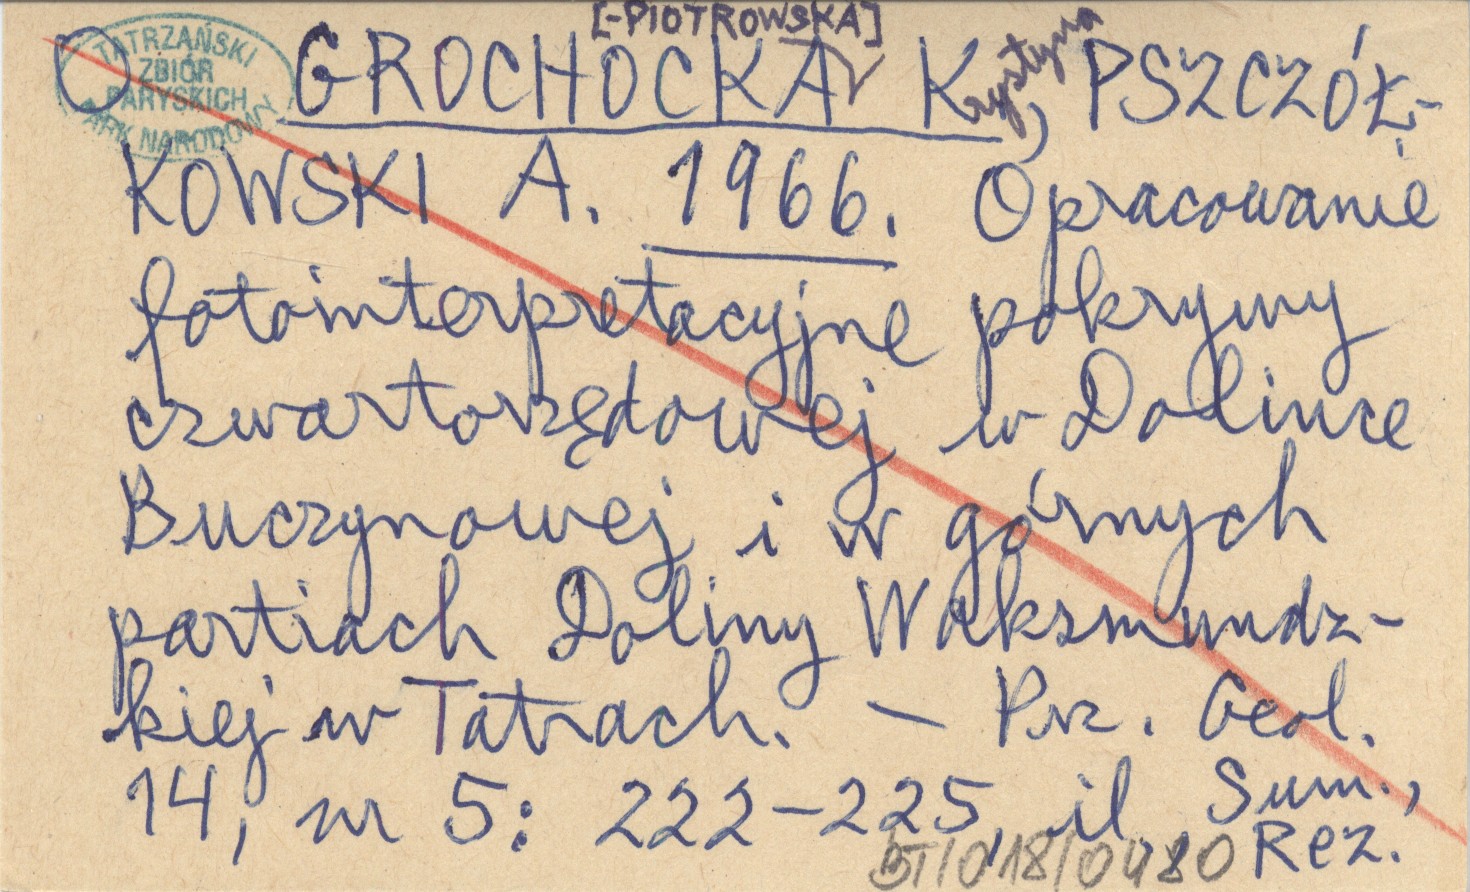 [-PIOTROWSKA]
TATRZAŃSKI
ZBIÓR
PARYSKICH
PARK NARODOWY
GROCHOCKA Krystyna, PSZCZÓŁ-
KOWSKI A. 1966. Opracowanie
fotointerpretacyjne pokrywy
czwartorzędowej w Dolince
Buczynowej i w górnych
partiach Doliny Waksmundz-
kiej w Tatrach. – Prz. Geol.
14, nr 5: 222-225, il., Sum.,
Rez.
BT/018/0480